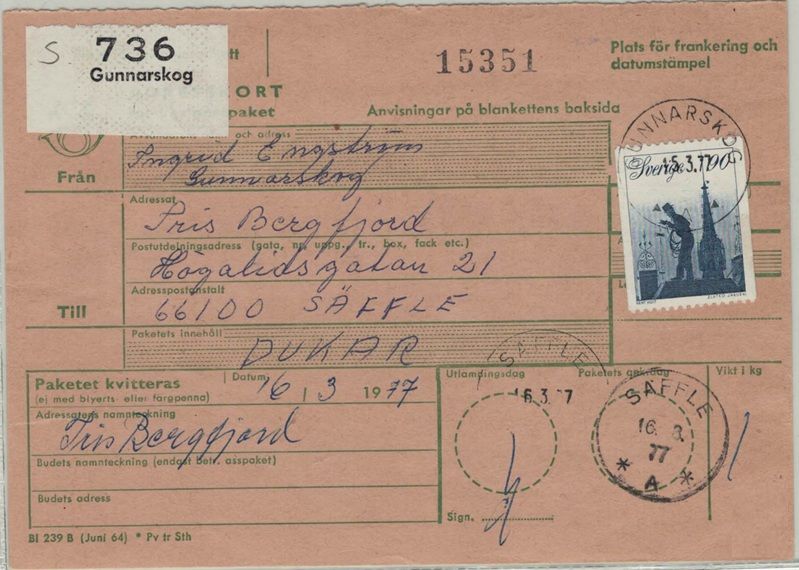 S 736
Gunnarskog
15351
Plats för frankering och
datumstämpel
KORT
paket
Anvisningar på blankettens baksida
och adress
GUNNARSKOG
15.3.77
Sverige 190
Från
Ingrid Engström
Gunnarskog
Adressat
Iris Bergfjord
Postutdelningsadress (gata, nr, uppg., tr., box, fack etc.)
Högalidsgatan 21
Adresspostanstalt
Till
66100 SÄFFLE
Paketets innehåll
DUKAR
SÄFFLE
16.3.77
Paketet kvitteras
(ej med blyerts- eller färgpenna)
Datum
16 / 3 1977
Utlämningsdag
Paketets ank.dag
Vikt i kg
Adressatens namnteckning
Iris Bergfjord
SÄFFLE
16. 3.
77
* A *
1
Budets namnteckning (endast betr. asspaket)
Budets adress
Sign.
BI 239 B (Juni 64) * Pv tr Sth